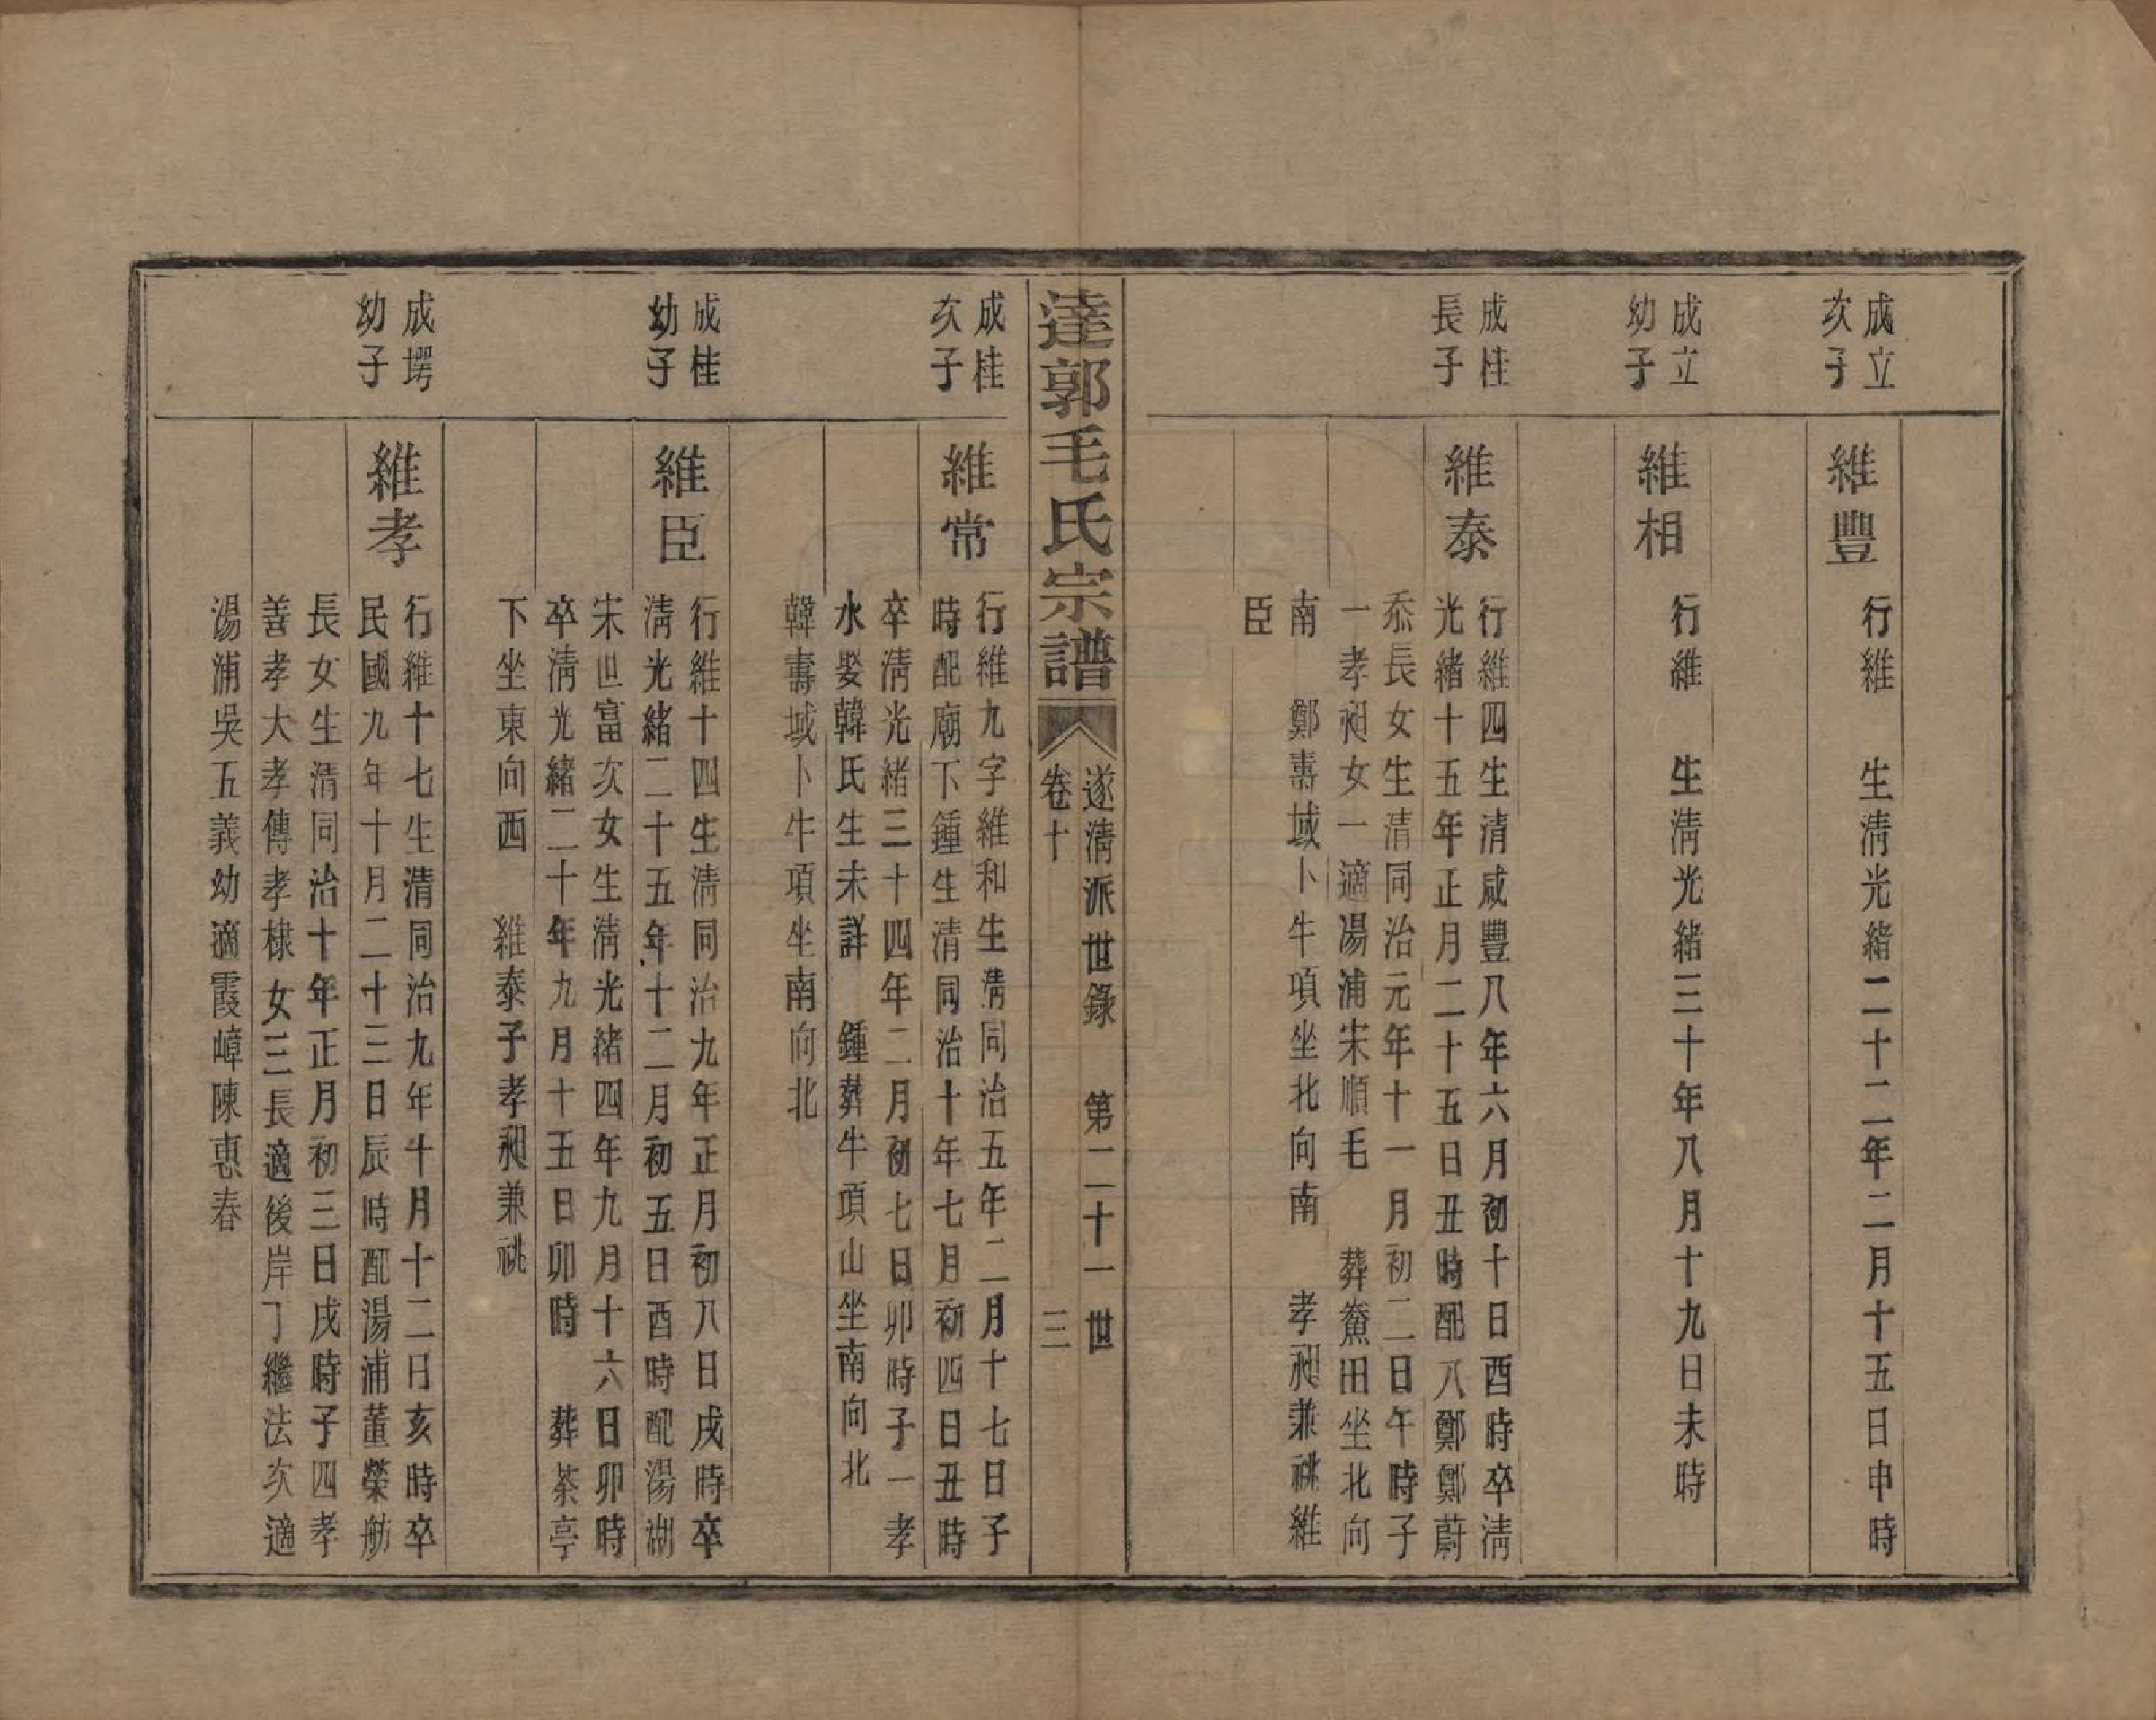 成立
次子
維豐
行維　生淸光緒二十二年二月十五日申時
成立
幼子
維相
行維　生淸光緒三十年八月十九日未時
成桂
長子
維泰
行維四生清咸豐八年六月初十日酉時卒淸
光緒十五年正月二十五日丑時配八鄭鄭蔚
忝長女生清同治元年十一月初二日午時子
一孝昶女一適湯浦宋順毛　葬鮝田坐北向
南　鄭壽域卜牛項坐北向南　孝昶兼祧維
臣
達郭毛氏宗譜
卷十
遂淸派世錄　第二十一世
三
成桂
次子
維常
行維九字維和生淸同治五年二月十七日子
時配廟下鍾生清同治十年七月初四日丑時
卒淸光緒三十四年二月初七日卯時子一孝
水娶韓氏生未詳　鍾葬牛項山坐南向北
韓壽域卜牛項坐南向北
成桂
幼子
維臣
行維十四生淸同治九年正月初八日戌時卒
淸光緒二十五年十二月初五日酉時配湯湖
宋世富次女生淸光緒四年九月十六日卯時
卒淸光緒二十年九月十五日卯時　葬茶亭
下坐東向西　維泰子孝昶兼祧
成堮
幼子
維孝
行維十七生清同治九年十月十二日亥時卒
民國九年十月二十三日辰時配湯浦董榮舫
長女生清同治十年正月初三日戌時子四孝
善孝大孝傳孝棣女三長適後岸丁繼法次適
湯浦吳五義幼適霞嶂陳惠春